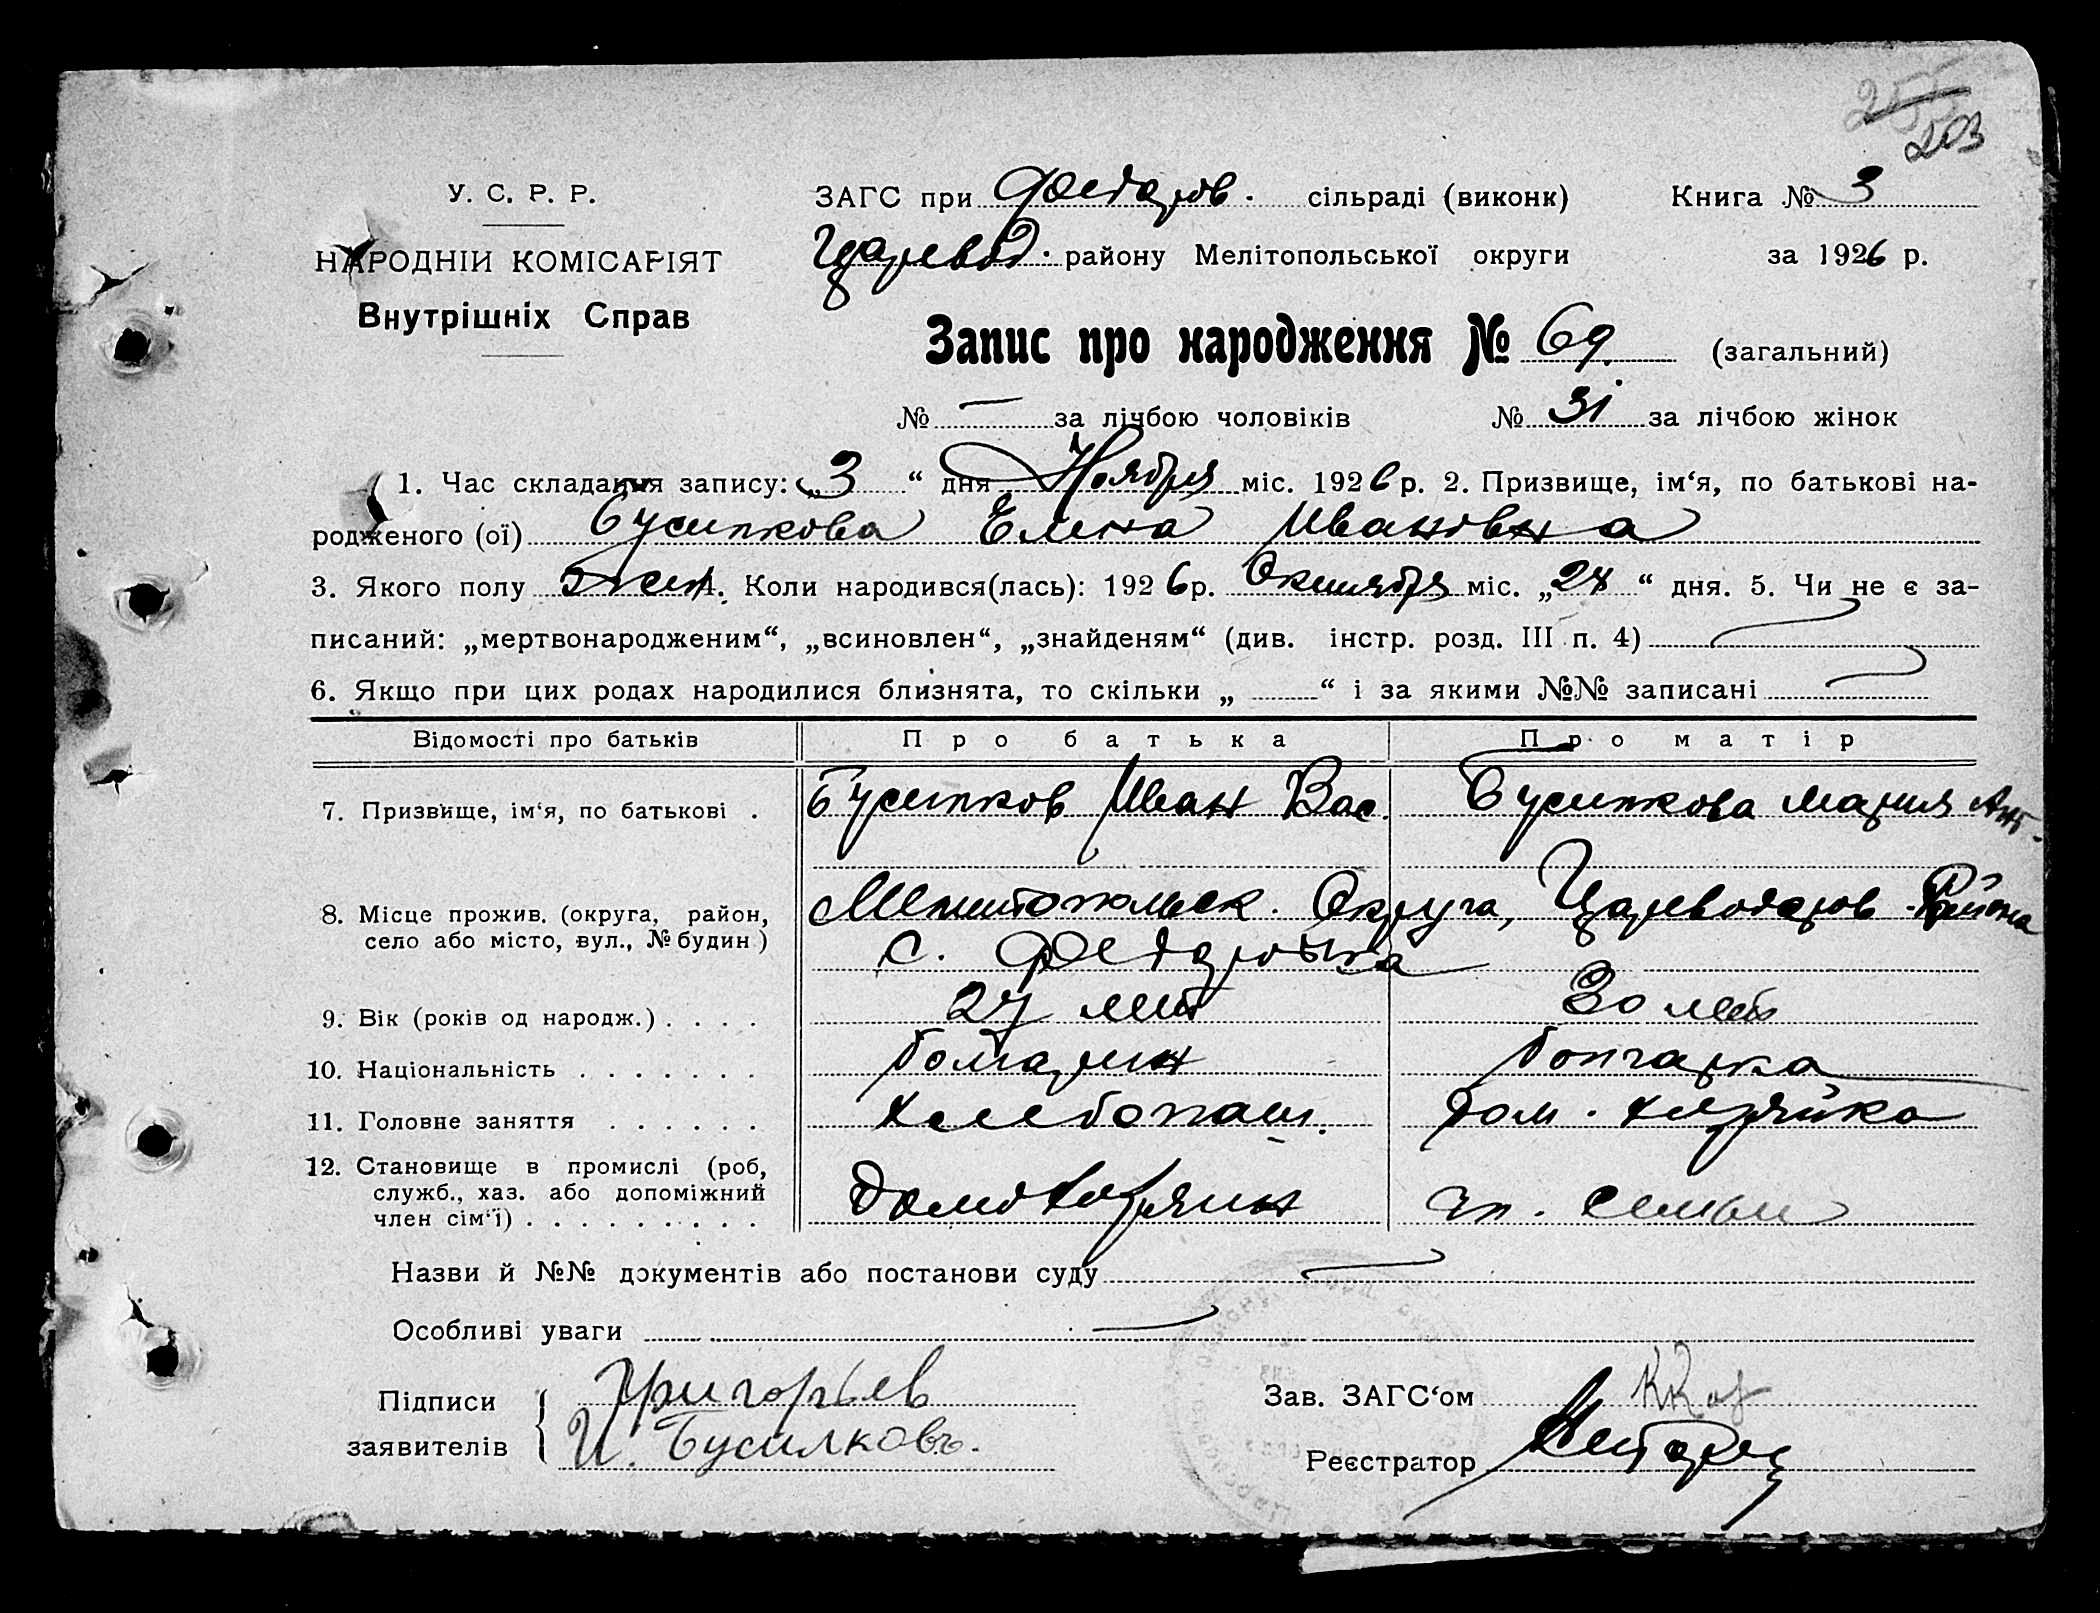 203
У. С. Р. Р.
НАРОДНІЙ КОМІСАРІЯТ
Внутрішніх Справ
ЗАГС при Федоров. сільраді (виконк) Книга № 3
Царевод. району Мелітопольської округи за 1926 р.
Запис про народження № 69. (загальний)
№ — за лічбою чоловіків № 31 за лічбою жінок
1. Час складання запису: „3“ дня Ноября міс. 1926 р. 2. Призвище, ім‘я, по батькові на-
родженого (ої) Бусилкова Елена Ивановна
3. Якого полу жен. 4. Коли народився(лась): 1926 р. Октября міс. „24“ дня. 5. Чи не є за-
писаний: „мертвонародженим“, „всиновлен“, „знайденям“ (див. інстр. розд. III п. 4)
6. Якщо при цих родах народилися близнята, то скільки „ “ і за якими №№ записані
Відомості про батьків Про батька Про матір
7. Призвище, ім‘я, по батькові . Бусилков Иван Вас. Бусилкова Мария Ант.
8. Місце прожив. (округа, район, село або місто, вул., № будин) Мелитопольск. Округа, Цареводаров. Района
с. Федоровка
9. Вік (років од народж.) . . . . 27 лет 30 лет
10. Національність . . . . . . . болгарин болгарка
11. Головне заняття . . . . . . Хлебопаш. Дом. хозяйка
12. Становище в промислі (роб, служб., хаз. або допоміжний член сім‘ї) . . . . . . . . . Домохозяин чл. семьи
Назви й №№ документів або постанови суду
Особливі уваги
Підписи заявителів { Григорьев
И. Бусилковъ.
Зав. ЗАГС‘ом
Реєстратор